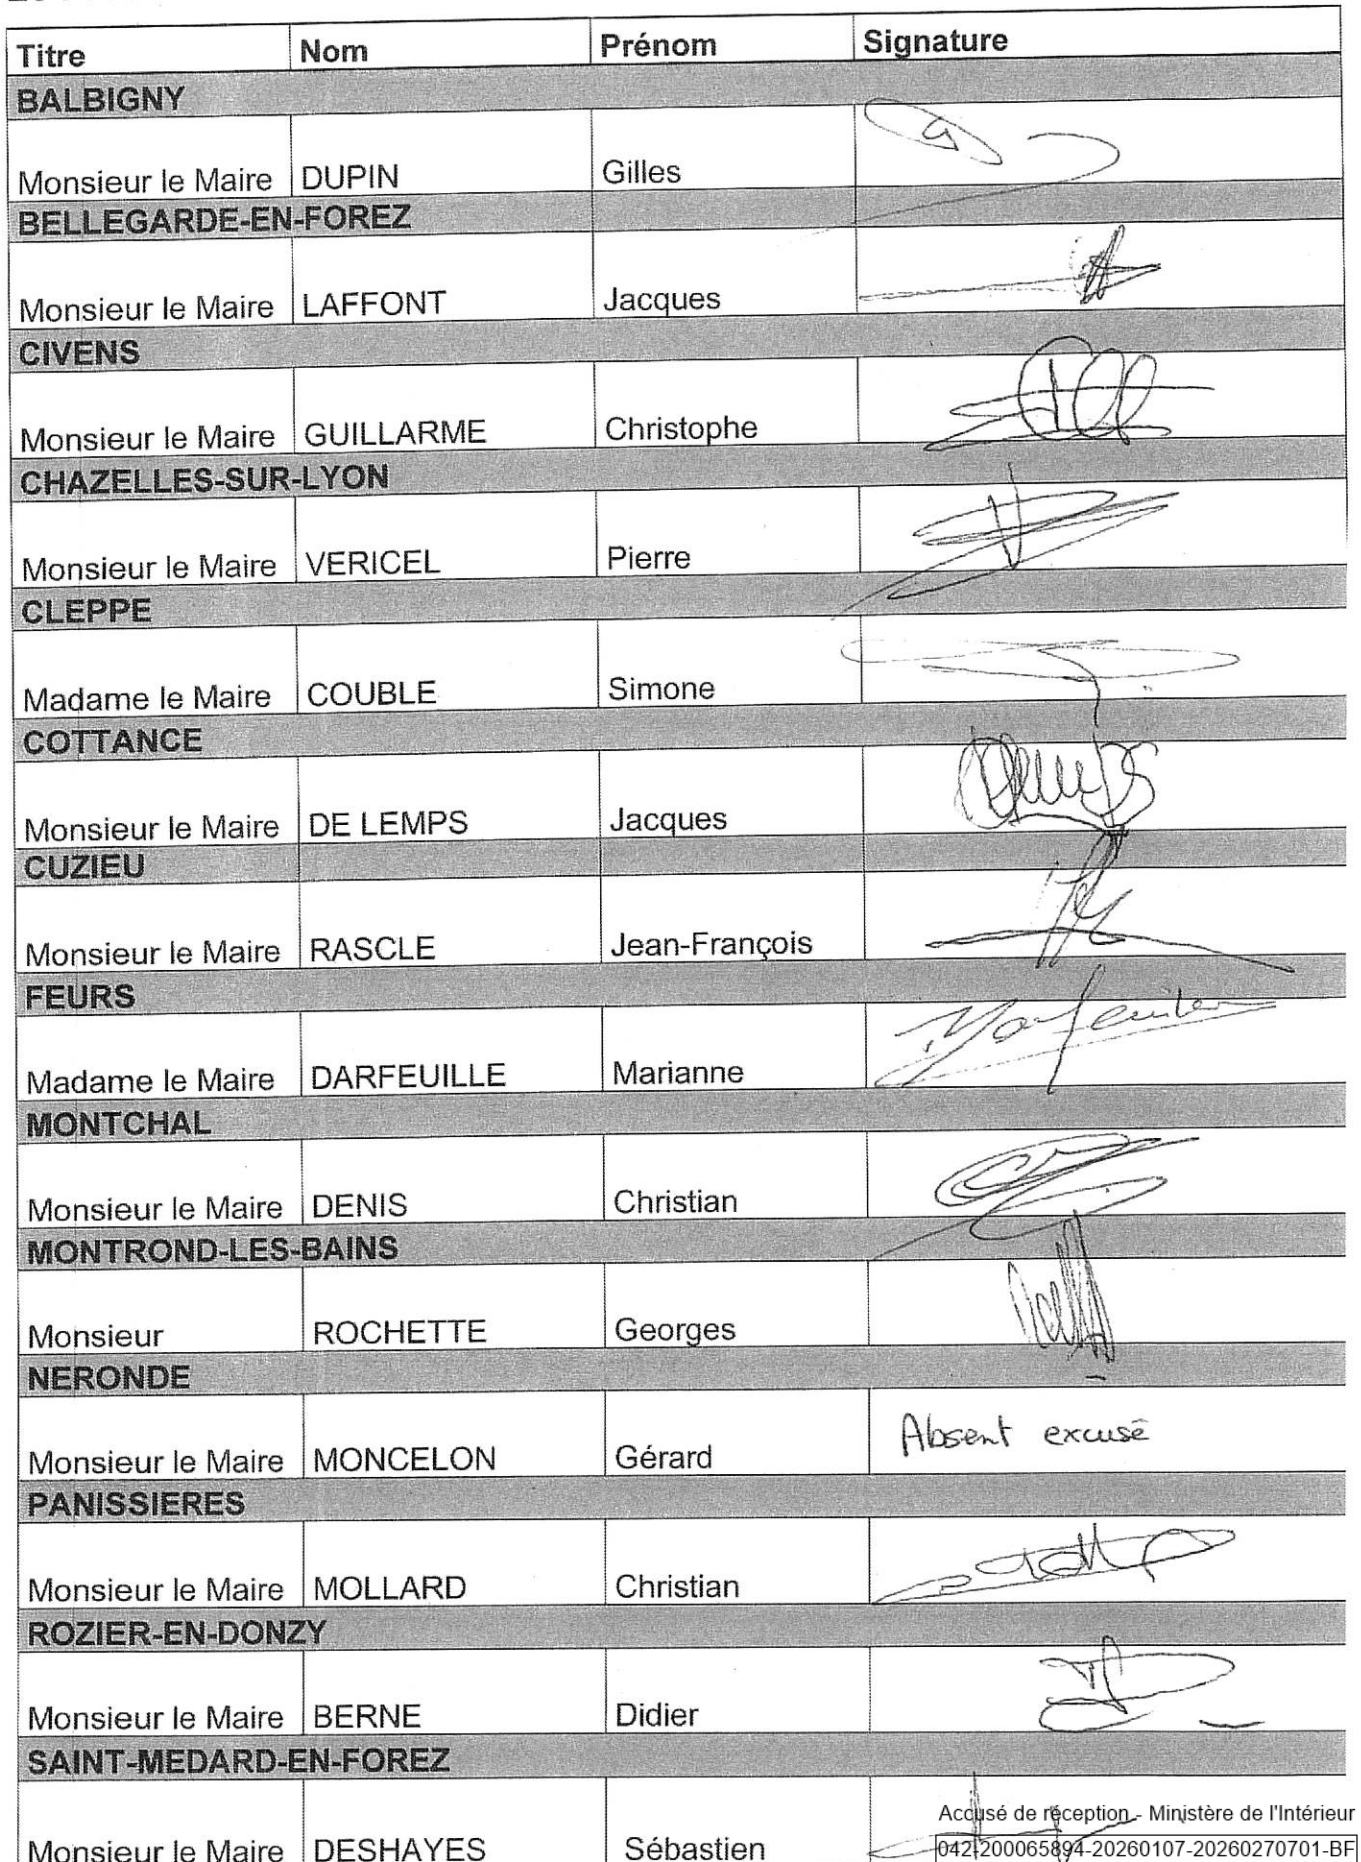 Titre Nom Prénom Signature
BALBIGNY
Monsieur le Maire DUPIN Gilles
BELLEGARDE-EN-FOREZ
Monsieur le Maire LAFFONT Jacques
CIVENS
Monsieur le Maire GUILLARME Christophe
CHAZELLES-SUR-LYON
Monsieur le Maire VERICEL Pierre
CLEPPE
Madame le Maire COUBLE Simone
COTTANCE
Monsieur le Maire DE LEMPS Jacques
CUZIEU
Monsieur le Maire RASCLE Jean-François
FEURS
Madame le Maire DARFEUILLE Marianne
MONTCHAL
Monsieur le Maire DENIS Christian
MONTROND-LES-BAINS
Monsieur ROCHETTE Georges
NERONDE
Monsieur le Maire MONCELON Gérard Absent excusé
PANISSIERES
Monsieur le Maire MOLLARD Christian
ROZIER-EN-DONZY
Monsieur le Maire BERNE Didier
SAINT-MEDARD-EN-FOREZ
Monsieur le Maire DESHAYES Sébastien
Accusé de réception - Ministère de l'Intérieur
042-200065894-20260107-20260270701-BF